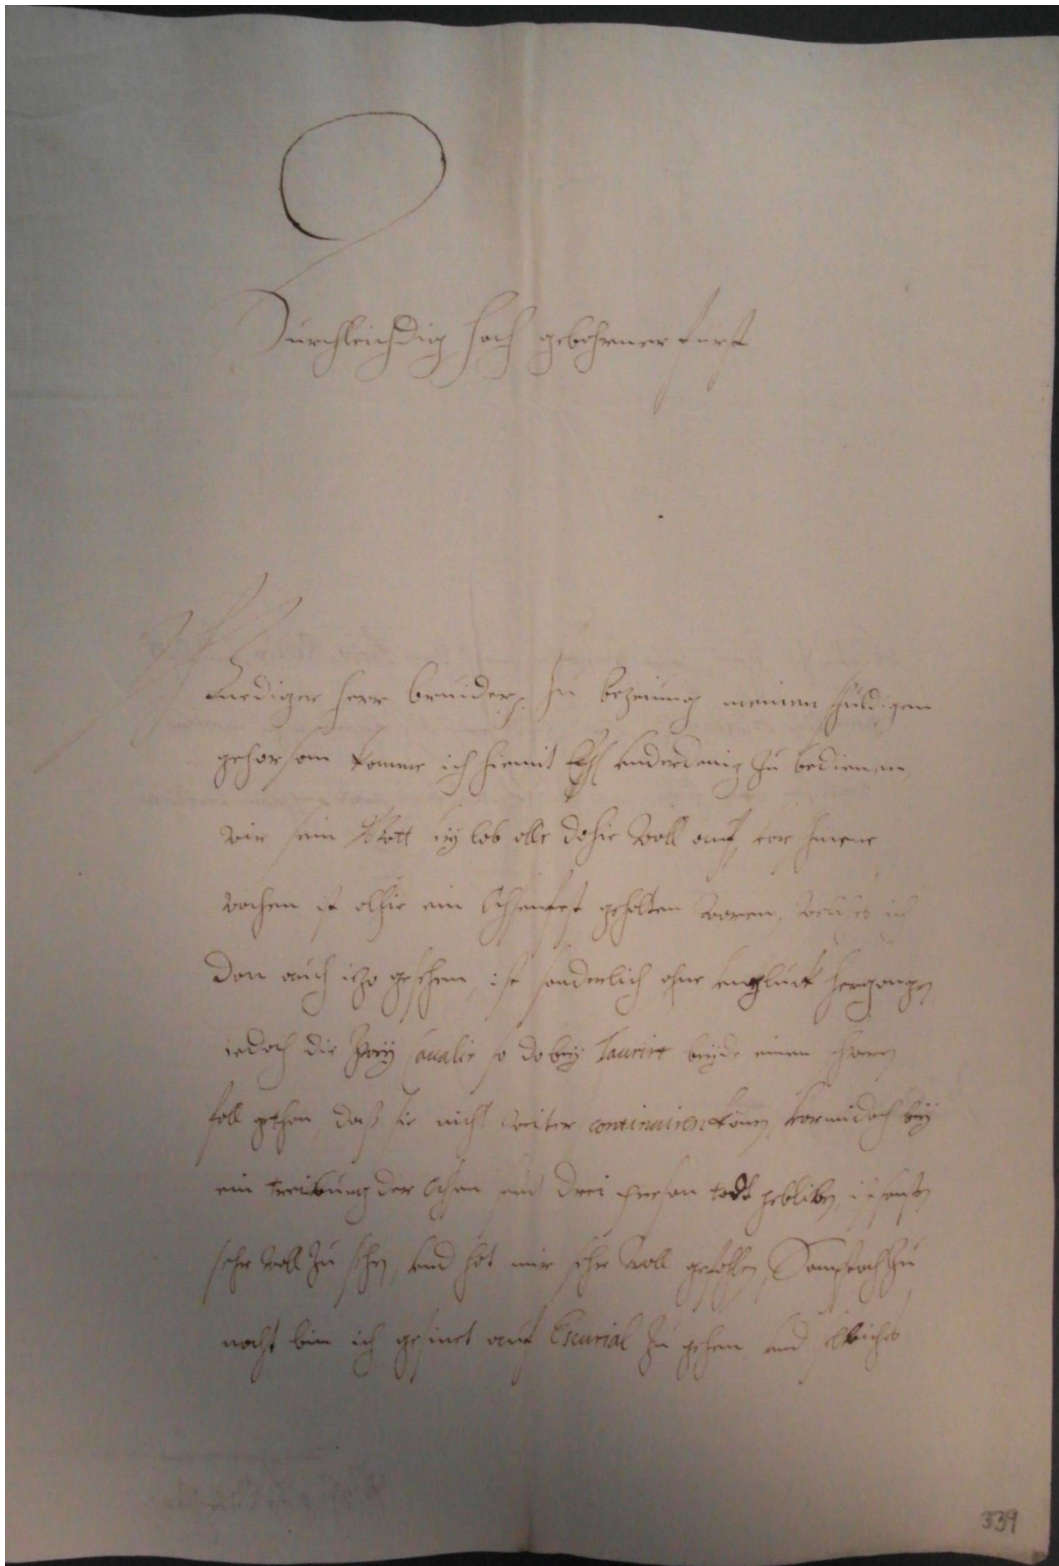 Durchleichdig hoch gebohrner furst
Gnediger herr bruider, Zu bezeiung meinen schuldigen
gehorsam komme ich hiemit EL underdenig zu bedienen,
wir sein Gott sey lob alle dahie woll auf, vor
wochen ist alhie ein Ochsenfest gehalten woren, welches ich
dan auch itzo gesehen, ist sonderlich ohne ungluck hergangen
iedoch die Zwey Cavalir so dabey Taurirt beyde einen
fall gethan, daß sie nicht weiter continuiren konen, vormidach bey
ein treibung der Ochsen seint drei person todt gebliben, ist sonsten
sehr woll zu sehen, und hat mir sehr woll gefallen, Sampstach zu
nacht bin ich gesinet auf Escurial zu gehen und
339